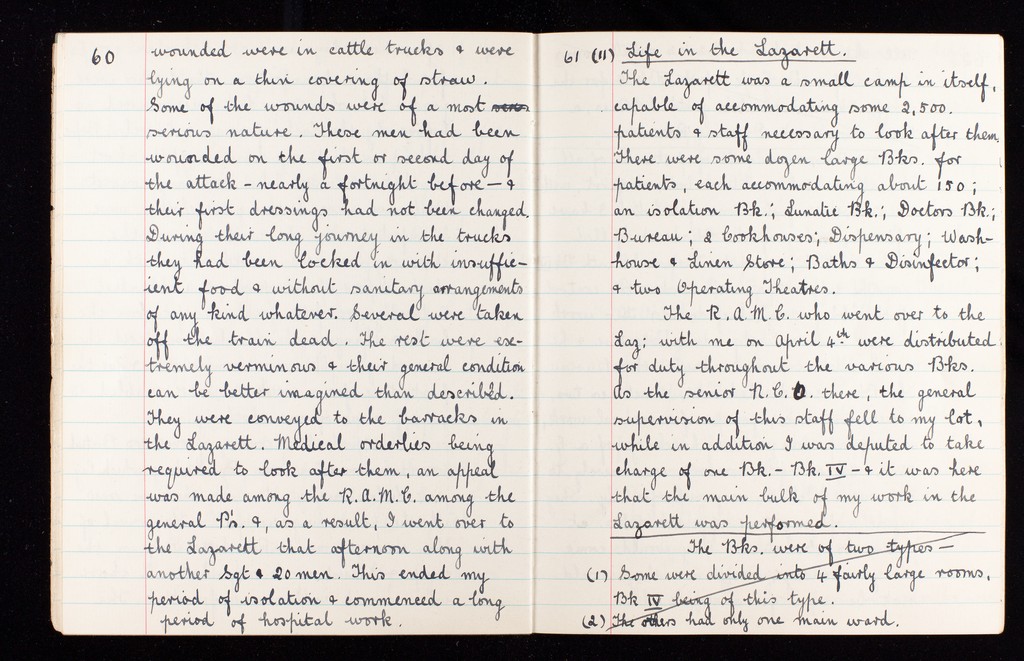 60
wounded were in cattle trucks & were
lying on a thin covering of straw.
Some of the wounds were of a most
serious nature. These men had been
wounded on the first or second day of
the attack - nearly a fortnight before - &
their first dressings had not been changed.
During their long journey in the trucks
they had been locked in with insuffic-
ient food & without sanitary arrangements
of any kind whatever. Several were taken
off the train dead. The rest were ex-
tremely verminous & their general condition
can be better imagined than described.
They were conveyed to the barracks in
the Lazarett. Medical orderlies being
required to look after them, an appeal
was made among the R.A.M.C. among the
general P's. &, as a result, I went over to
the Lazarett that afternoon along with
another Sgt & 20 men. This ended my
period of isolation & commenced a long
period of hospital work.
61 (11) Life in the Lazarett.
The Lazarett was a small camp in itself,
capable of accommodating some 2,500.
patients & staff necessary to look after them.
There were some dozen large Bks. for
patients, each accommodating about 150;
an isolation Bk.; Lunatic Bk.; Doctors Bk.;
Bureau; 2 Cookhouses; Dispensary; Wash-
house & Linen Store; Baths & Disinfector;
& two Operating Theatres.
The R.A.M.C. who went over to the
Laz; with me on April 4th were distributed
for duty throughout the various Bks.
As the senior N.C.O. there, the general
supervision of this staff fell to my lot,
while in addition I was deputed to take
charge of one Bk. - Bk. IV - & it was here
that the main bulk of my work in the
Lazarett was performed.
The Bks. were of two types -
(1) Some were divided into 4 fairly large rooms,
Bk IV being of this type.
(2) The others had only one main ward.